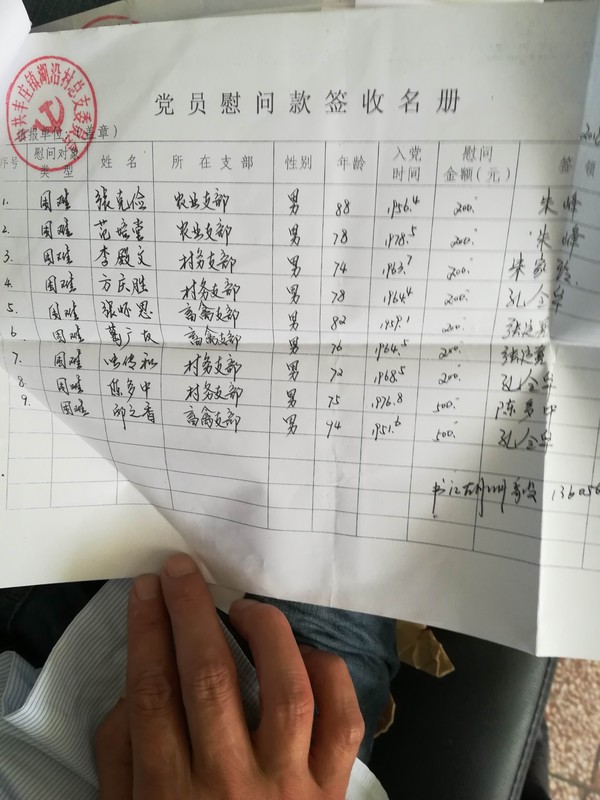 中共丰庄镇湖沿村总支委员会
党员慰问款签收名册
填报单位：（盖章）
序号 慰问对象类型 姓名 所在支部 性别 年龄 入党时间 慰问金额（元） 签领
1. 困难 张克俭 农业支部 男 88 1956.4 200. 朱峰
2. 困难 范培堂 农业支部 男 78 1978.5 200. 朱峰
3. 困难 李殿文 村务支部 男 74 1963.7 200. 朱家
4. 困难 方庆胜 村务支部 男 78 1964.4 200. 孔令军
5. 困难 张怀恩 畜禽支部 男 82 1959.1 200. 张廷
6. 困难 葛广友 畜禽支部 男 76 1964.5 200. 张廷
7. 困难 传礼 村务支部 男 72 1968.5 200. 孔令军
8. 困难 陈多中 村务支部 男 75 1976.8 500. 陈多中
9. 困难 邱之香 畜禽支部 男 94 1951.6 500. 孔令军
书记